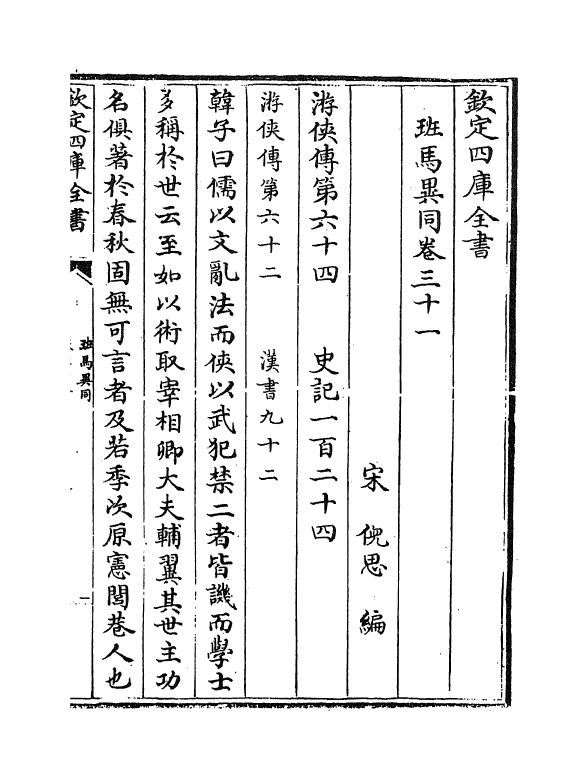 欽定四庫全書
班馬異同卷三十一
宋 倪思 編
游俠傳第六十四 史記一百二十四
游俠傳第六十二 漢書九十二
韓子曰儒以文亂法而俠以武犯禁二者皆譏而學士
多稱於世云至如以術取宰相卿大夫輔翼其世主功
名俱著於春秋固無可言者及若季次原憲閭巷人也
欽定四庫全書
班馬異同
一